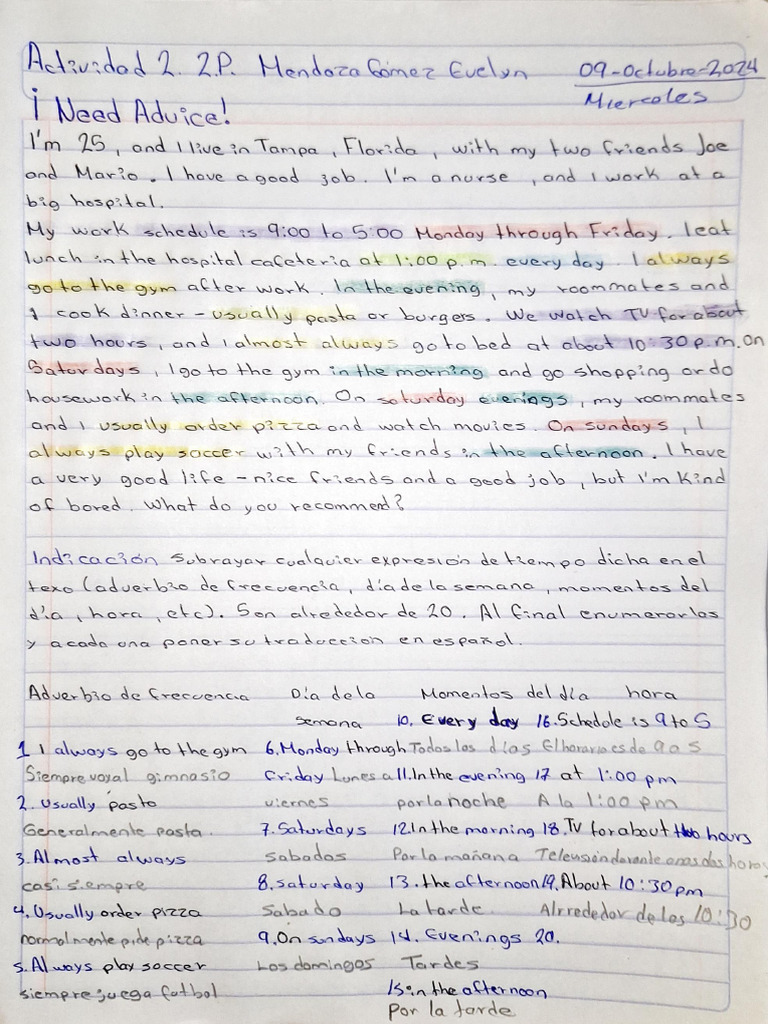 Actividad 2. 2P. Mendoza Gómez Evelyn 09-Octubre-2024
Miercoles
¡ Need Advice!
I'm 25, and I live in Tampa, Florida, with my two friends Joe
and Mario. I have a good job. I'm a nurse, and I work at a
big hospital.
My work schedule is 9:00 to 5:00 Monday through Friday. I eat
lunch in the hospital cafeteria at 1:00 p.m. every day. I always
go to the gym after work. In the evening, my roommates and
I cook dinner - usually pasta or burgers. We watch TV for about
two hours, and I almost always go to bed at about 10:30 p.m. On
Saturdays, I go to the gym in the morning and go shopping or do
housework in the afternoon. On saturday evenings, my roommates
and I usually order pizza and watch movies. On sundays, I
always play soccer with my friends in the afternoon. I have
a very good life - nice friends and a good job, but I'm kind
of bored. What do you recommend?
Indicación Subrayar cualquier expresión de tiempo dicha en el
texo (adverbio de frecuencia, día de la semana, momentos del
día, hora, etc). Son alrededor de 20. Al final enumerarlos
y a cada una poner su traducción en español.
Adverbio de frecuencia Día de la Momentos del día hora
semana 10. Every day 16. Schedole is 9 to 5
1 I always go to the gym 6. Monday through Todos los días El horario es de 9 a 5
Siempre voy al gimnasio Friday Lunes a 11. In the evening 17 at 1:00 pm
2. Usually pasta viernes por la noche A la 1:00 pm
Generalmente pasta. 7. Saturdays 12. In the morning 18. TV for about two hours
3. Almost always sabados Por la mañana Televisión durante unas dos horas
casi siempre 8. saturday 13. the afternoon 19. About 10:30pm
4. Usually order pizza Sabado La tarde. Alrrededor de las 10:30
normalmente pide pizza 9. On sundays 14. Evenings 20.
5. Always play soccer Los domingos Tardes
siempre juega futbol 15. in the afternoon
por la tarde